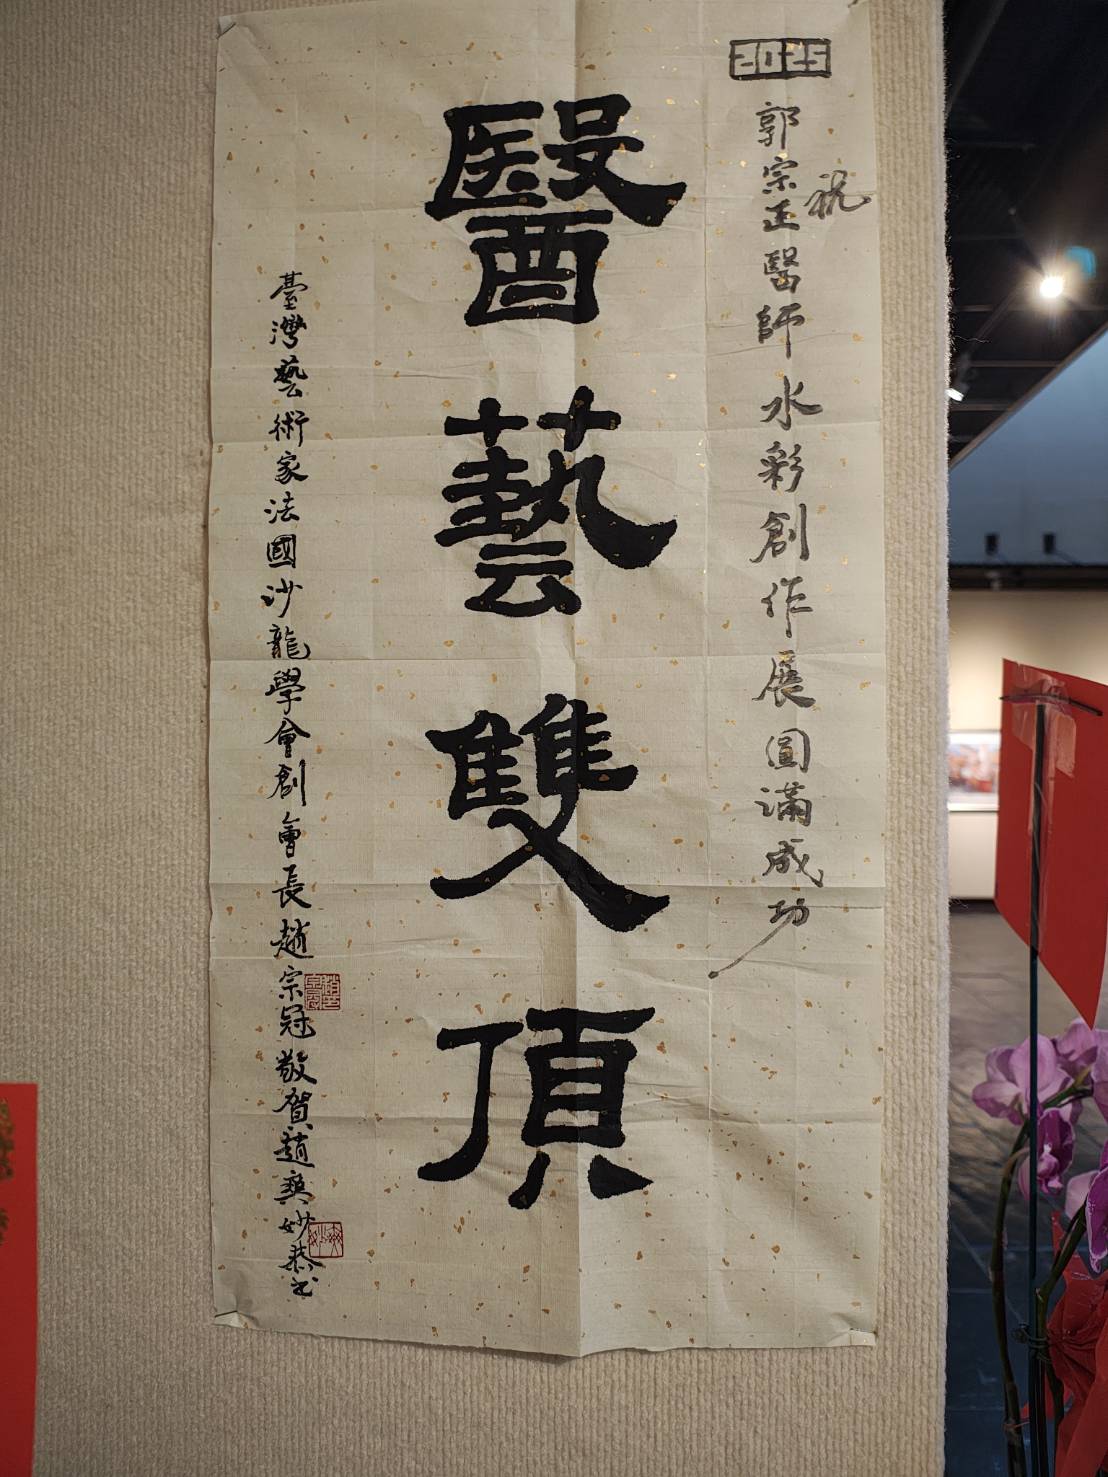 2025
祝
郭宗正醫師水彩創作展圓滿成功
醫藝雙頂
臺灣藝術家法國沙龍學會創會長趙宗冠敬賀趙爽妙恭書